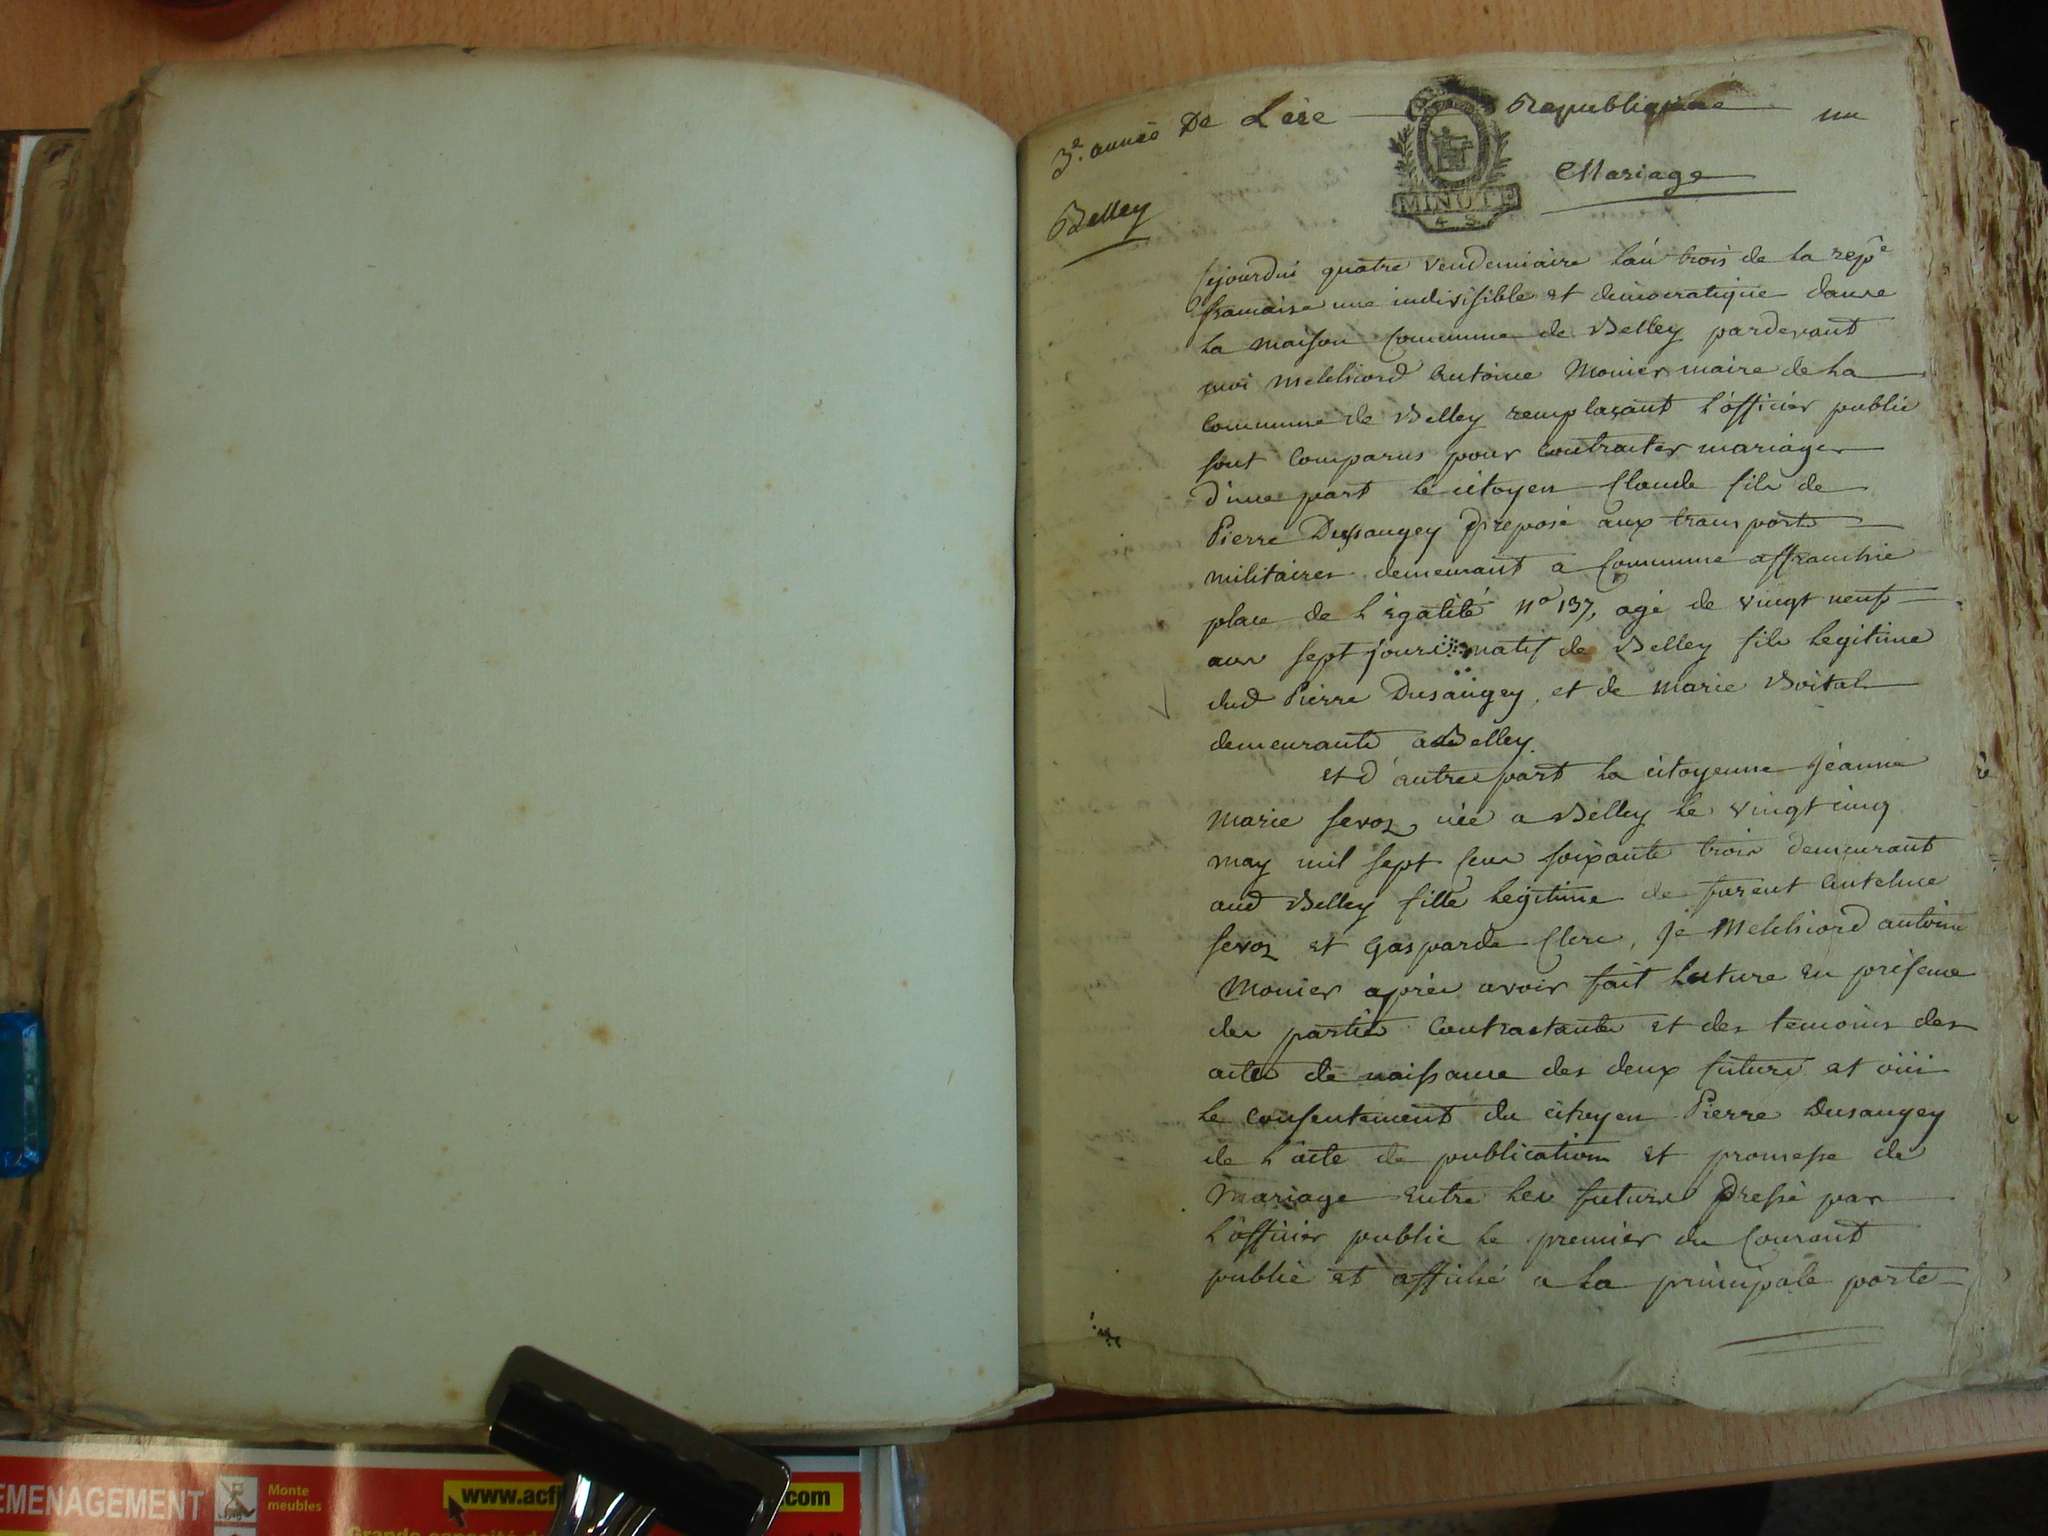 3e. année De L'ère Republiquaine un
Mariage
MINUTE
4 S
Belley
Cejourdui quatre vendemiaire l'an trois de la repe
francaise une indivisible et democratique dans
la maison Commune de Belley pardevant
moi Melchiord Antoine Monier maire de la
Commune de Belley remplaçant l'officier public
sont Comparus pour Contracter mariage
d'une part le citoyen Claude fils de
Pierre Dussaugey préposé aux transports
militaires demeurant a Commune affranchie
place de l'égalité no 137, agé de vingt neuf
ans sept jours natif de Belley fils legitime
dud Pierre Dusaugey, et de marie Boital
demeurants a Belley.
et d'autre part la citoyenne Jéanne
Marie Sevoz née a Belley le vingt cinq
may mil sept Cens soixante trois demeurant
aud Belley fille legitime de furent Antelme
Sevoz et Gasparde Clerc, Je Melchiord antoine
Monier après avoir fait lecture en présence
des parties Contractantes et des temoins des
actes de naissance des deux futurs et oui
le consentement du citoyen Pierre Dusaugey
de l'acte de publication et promesse de
Mariage entre les futurs Dressé par
l'officier public le premier du Courant
publié et affiché a la principale porte
EMENAGEMENT
Monte
meubles
www.acfi
.com